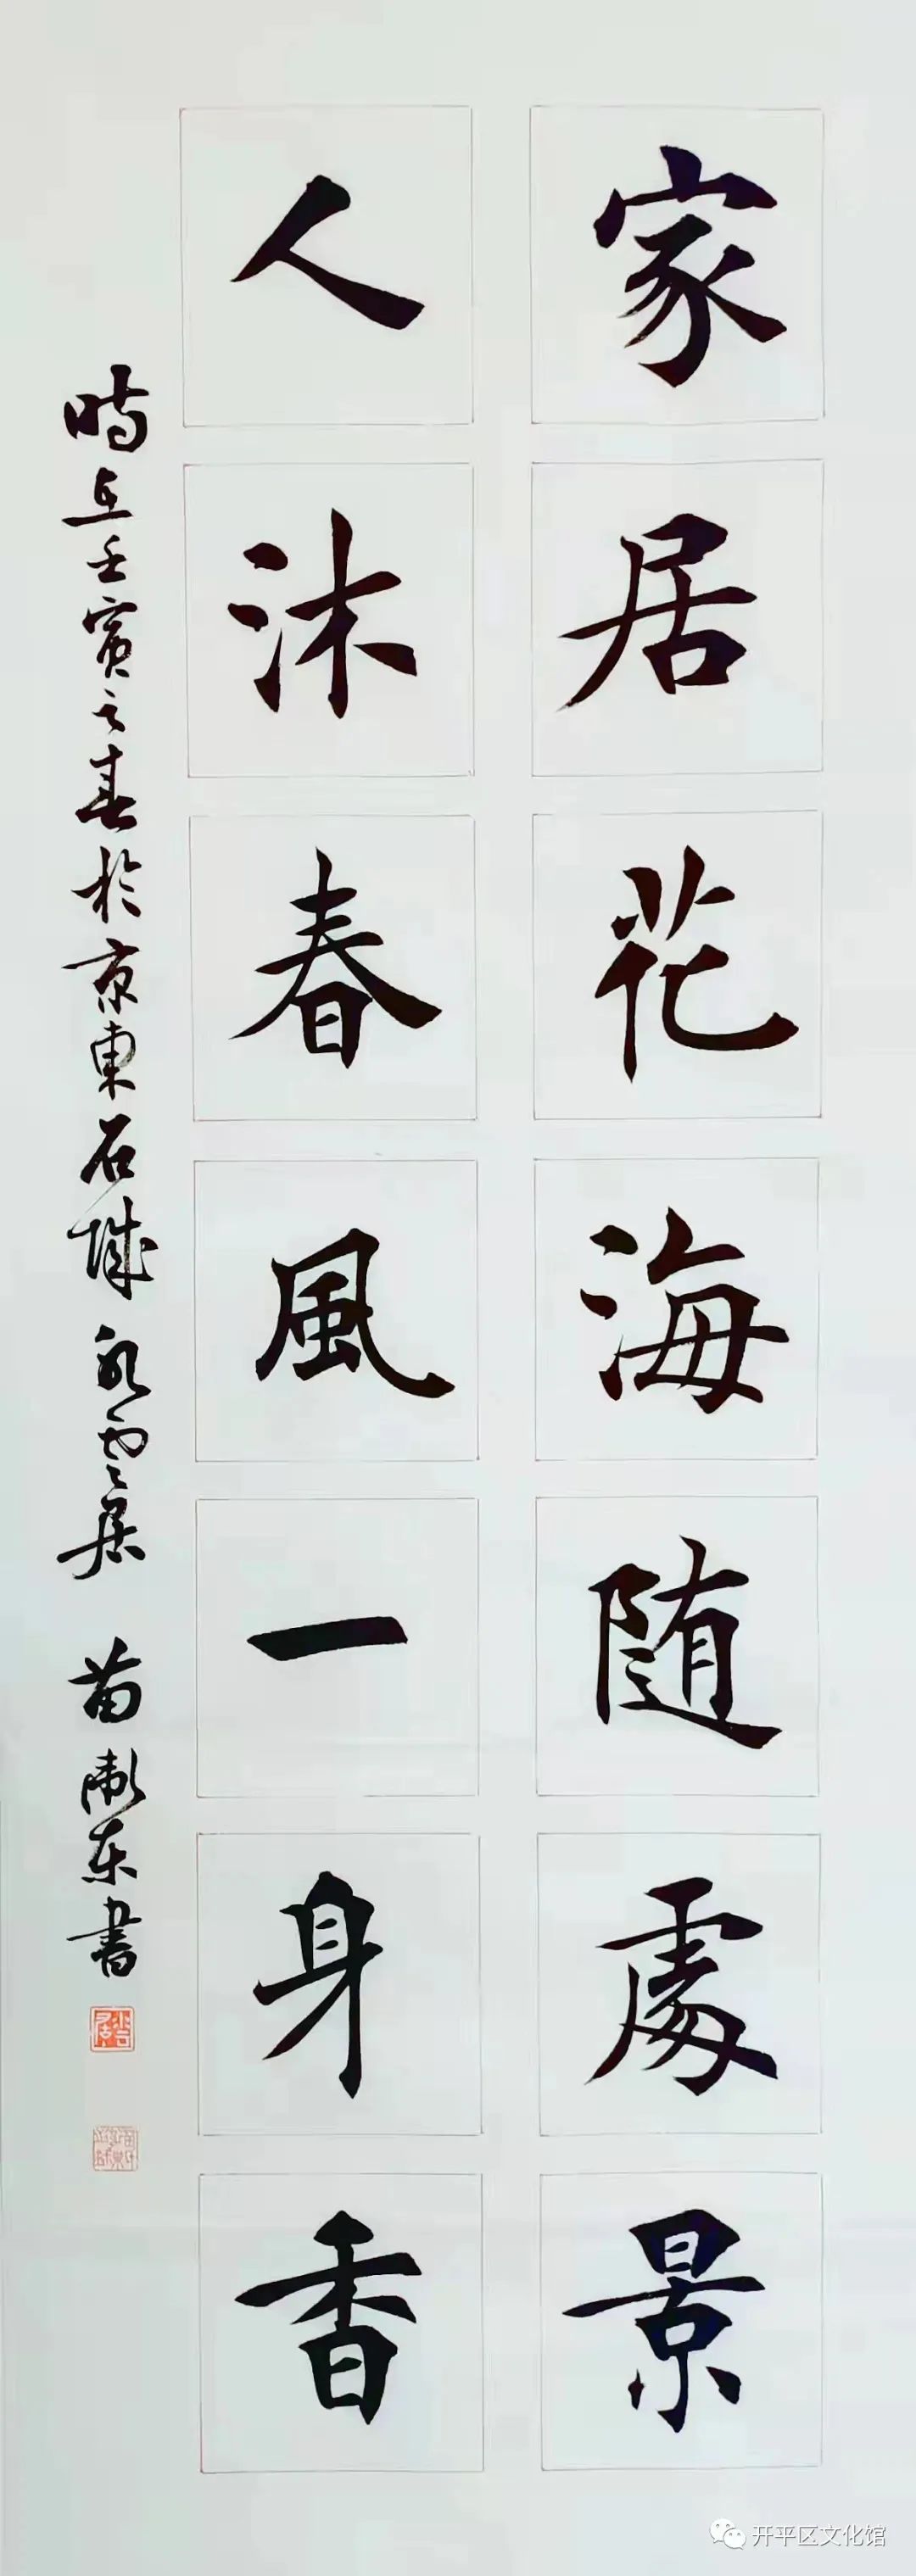 家居花海随處景
人沐春風一身香
時在壬寅之春於京東石城永雲居 苗衛东書
开平区文化馆